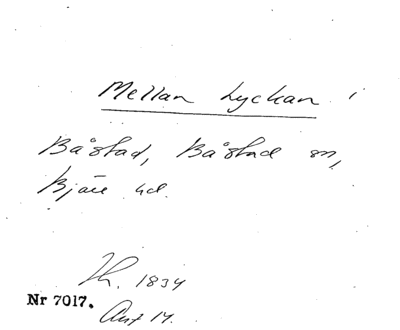 Mellan Lyckan i
Båstad, Båstad sn,
Bjäre hd.
Th. 1834
Nr 7017. Art 14.